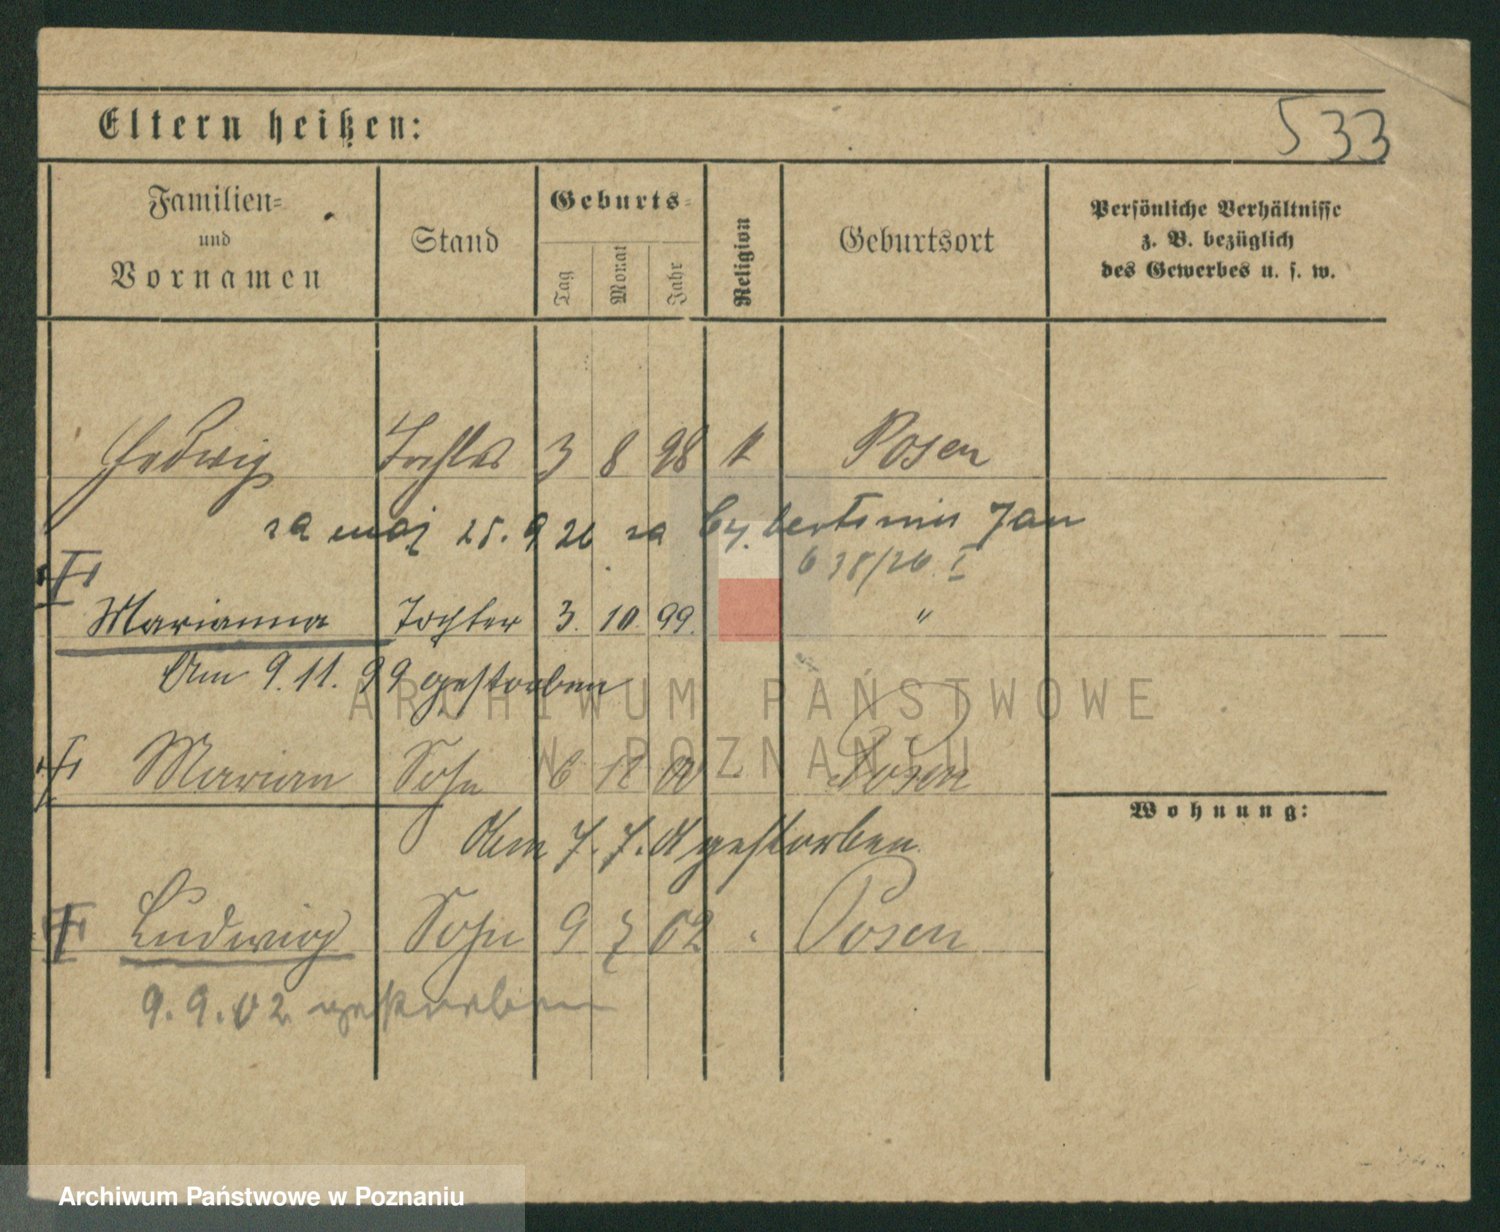 Eltern heißen:
533
Familien- und Vornamen
Stand
Geburts-
Tag
Monat
Jahr
Religion
Geburtsort
Persönliche Verhältnisse
z. B. bezüglich
des Gewerbes u. s. w.
Hedwig Tochter 3 8 98 k Posen
za mąż 25. 9 26 za Jan
638/26. I
Marianna Tochter 3. 10. 99. "
Am 9. 11. 99 gestorben
Marian Sohn 6 12 00 Posen
Wohnung:
Am 7. 7. 01 gestorben.
Ludwig Sohn 9 7 02 Posen
9. 9. 02 gestorben
ARCHIWUM PAŃSTWOWE
W POZNANIU
Archiwum Państwowe w Poznaniu